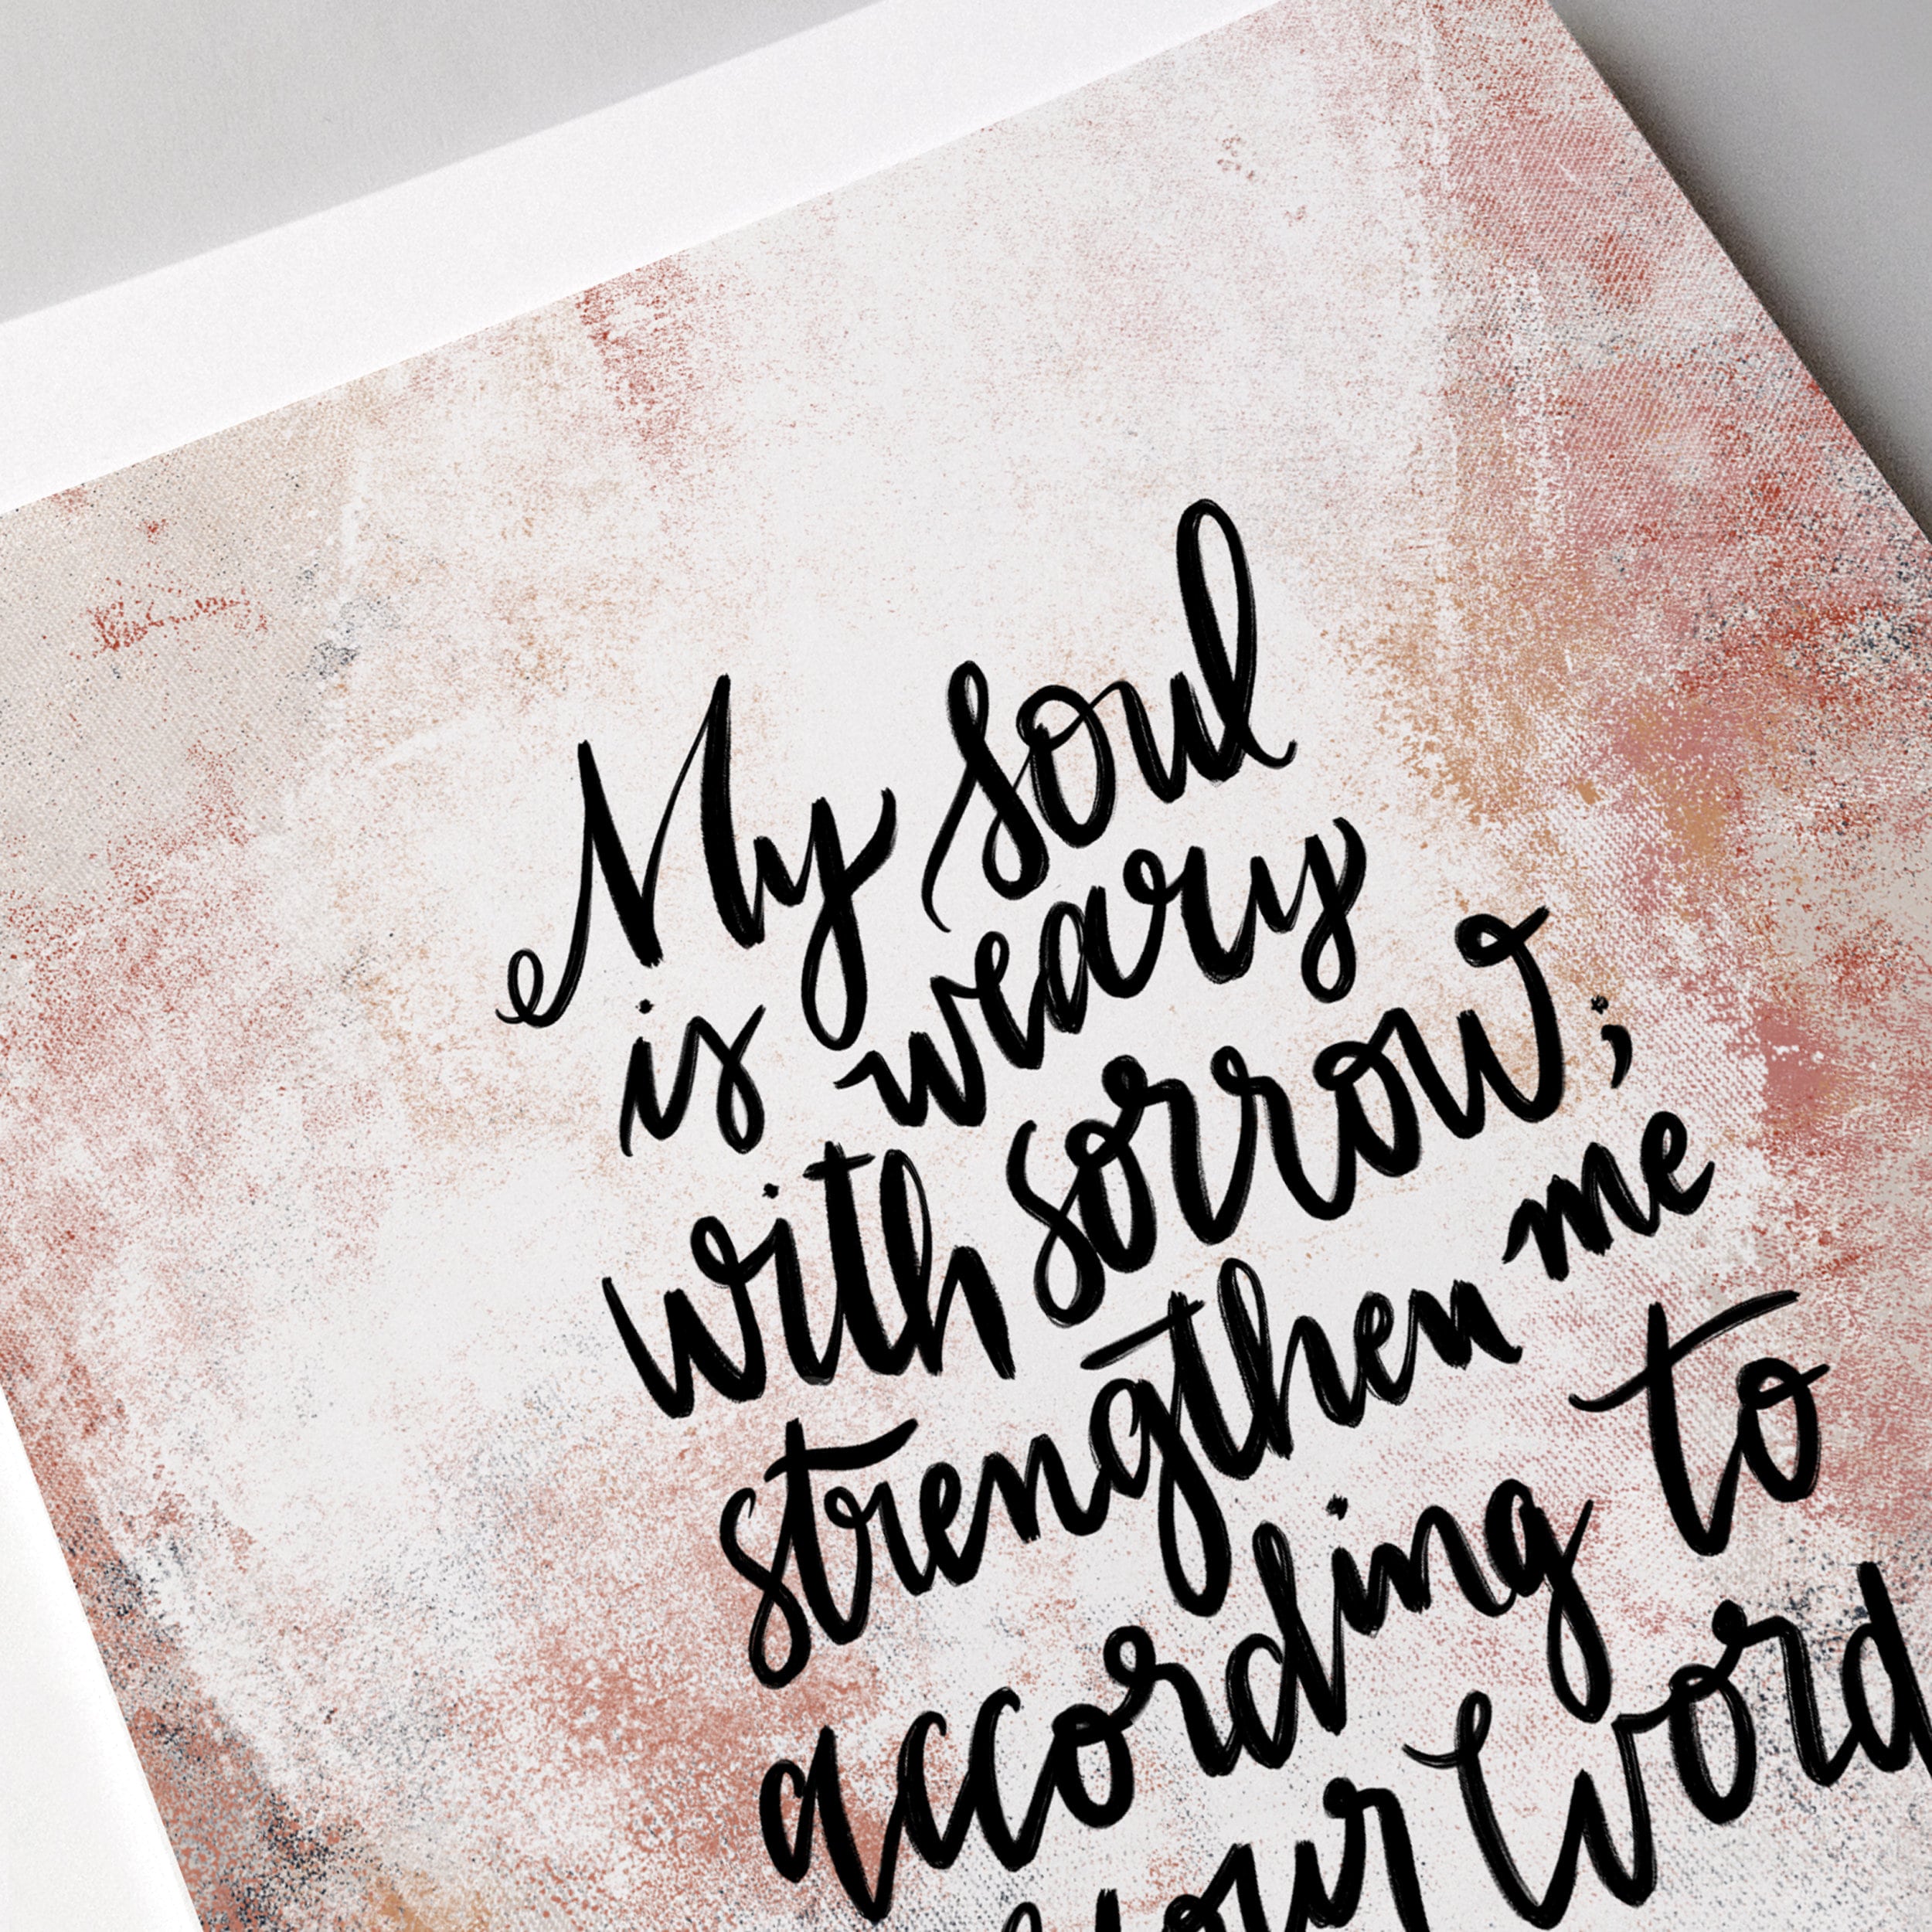 My soul
is weary
with sorrow;
strengthen me
according to
your word